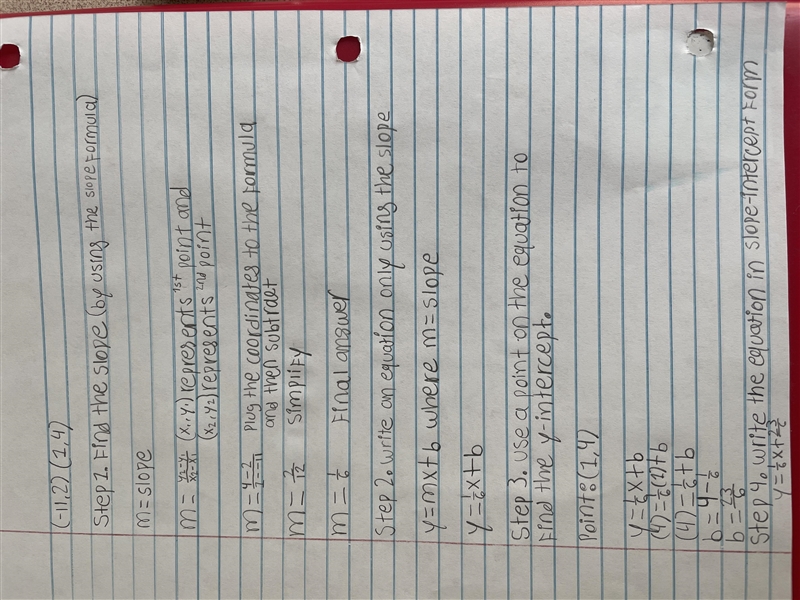 (-11,2) (1,4)
Step 1. Find the slope (by using the slope formula)
m=slope
m = y₂-y₁/x₂-x₁ (x₁,y₁) represents 1st point and
(x₂,y₂) represents 2nd point
m = 4-2/1--11 Plug the coordinates to the formula
and then subtract
m = 2/12 Simplify
m = 1/6 Final answer
Step 2. write an equation only using the slope
y=mx+b where m=slope
y=1/6x+b
Step 3. Use a point on the equation to
find the y-intercept.
Point:(1,4)
y=1/6x+b
(4)=1/6(1)+b
(4)=1/6+b
b=4-1/6
b=23/6
Step 4. write the equation in slope-intercept form
y=1/6x+23/6